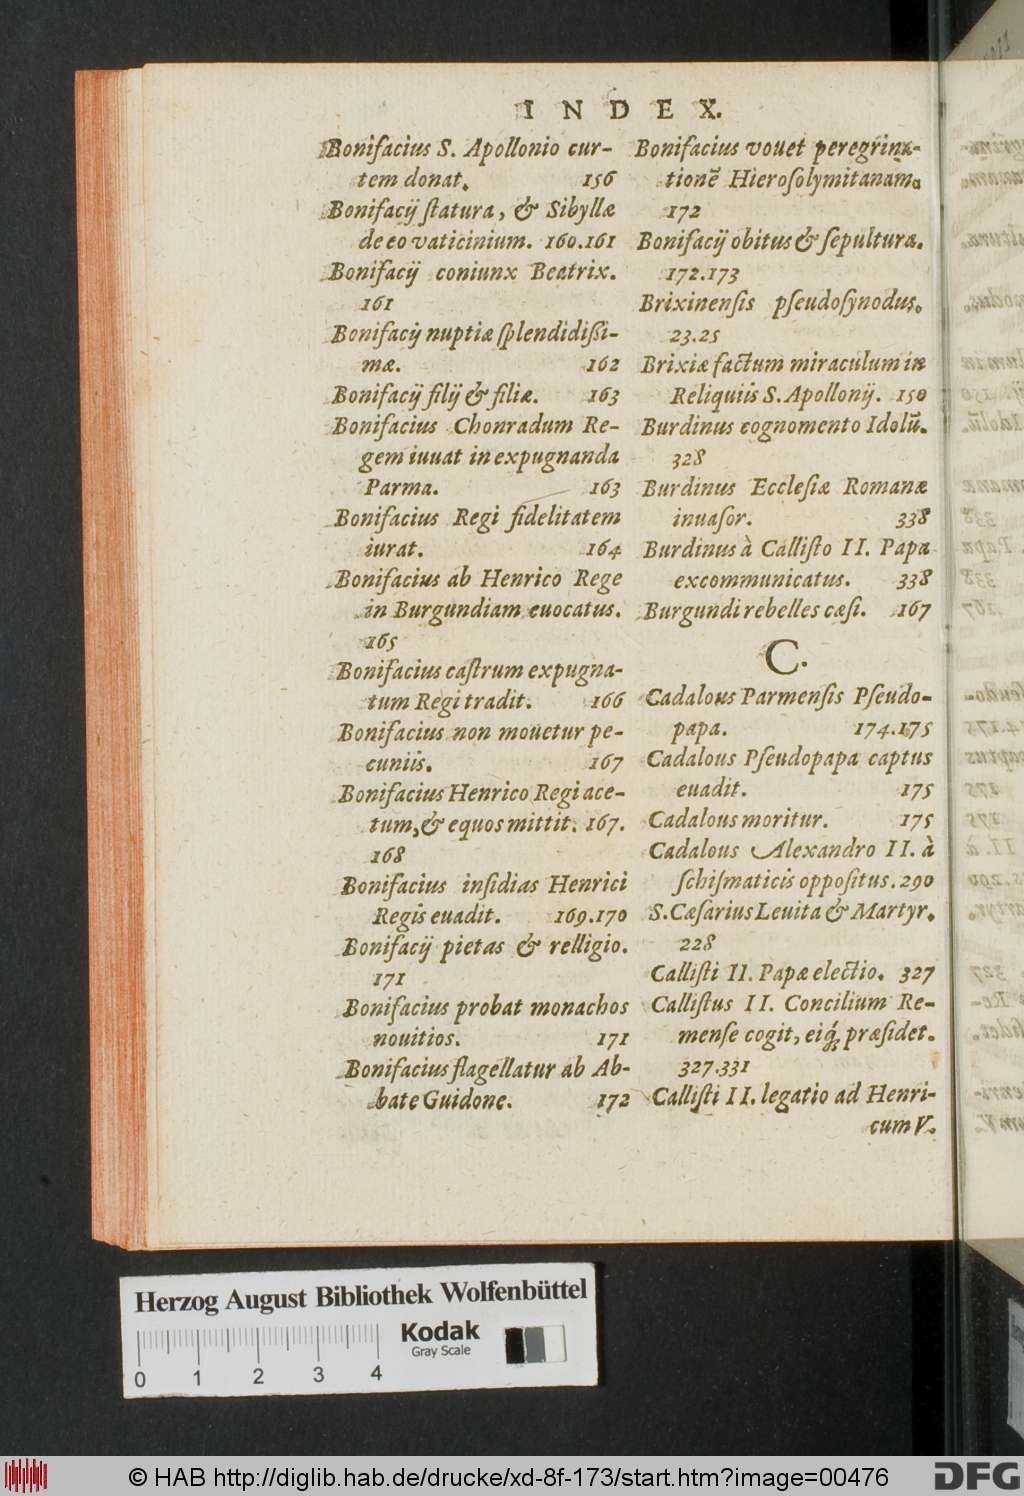 INDEX.
Bonifacius S. Apollonio cur-
tem donat. 156
Bonifacij ſtatura, & Sibyllæ
de eo vaticinium. 160.161
Bonifacij coniunx Beatrix.
161
Bonifacij nuptiæ ſplendidißi-
mæ. 162
Bonifacij filij & filiæ. 163
Bonifacius Chonradum Re-
gem iuuat in expugnanda
Parma. 163
Bonifacius Regi fidelitatem
iurat. 164
Bonifacius ab Henrico Rege
in Burgundiam euocatus.
165
Bonifacius caſtrum expugna-
tum Regi tradit. 166
Bonifacius non mouetur pe-
cuniis. 167
Bonifacius Henrico Regi ace-
tum, & equos mittit. 167.
168
Bonifacius inſidias Henrici
Regis euadit. 169.170
Bonifacij pietas & relligio.
171
Bonifacius probat monachos
nouitios. 171
Bonifacius flagellatur ab Ab-
bate Guidone. 172
Bonifacius vouet peregrina-
tionē Hieroſolymitanam.
172
Bonifacij obitus & ſepultura.
172.173
Brixinenſis pſeudoſynodus.
23.25
Brixiæ factum miraculum in
Reliquiis S. Apollonij. 150
Burdinus cognomento Idolū.
328
Burdinus Eccleſiæ Romanæ
inuaſor. 338
Burdinus à Calliſto II. Papa
excommunicatus. 338
Burgundi rebelles cæſi. 167
C.
Cadalous Parmenſis Pſeudo-
papa. 174.175
Cadalous Pſeudopapa captus
euadit. 175
Cadalous moritur. 175
Cadalous Alexandro II. à
ſchiſmaticis oppoſitus. 290
S. Cæſarius Leuita & Martyr.
228
Calliſti II. Papæ electio. 327
Calliſtus II. Concilium Re-
menſe cogit, eiq́; præſidet.
327.331
Calliſti II. legatio ad Henri-
cum V.
Herzog August Bibliothek Wolfenbüttel
Kodak
Gray Scale
0 1 2 3 4
© HAB http://diglib.hab.de/drucke/xd-8f-173/start.htm?image=00476
DFG